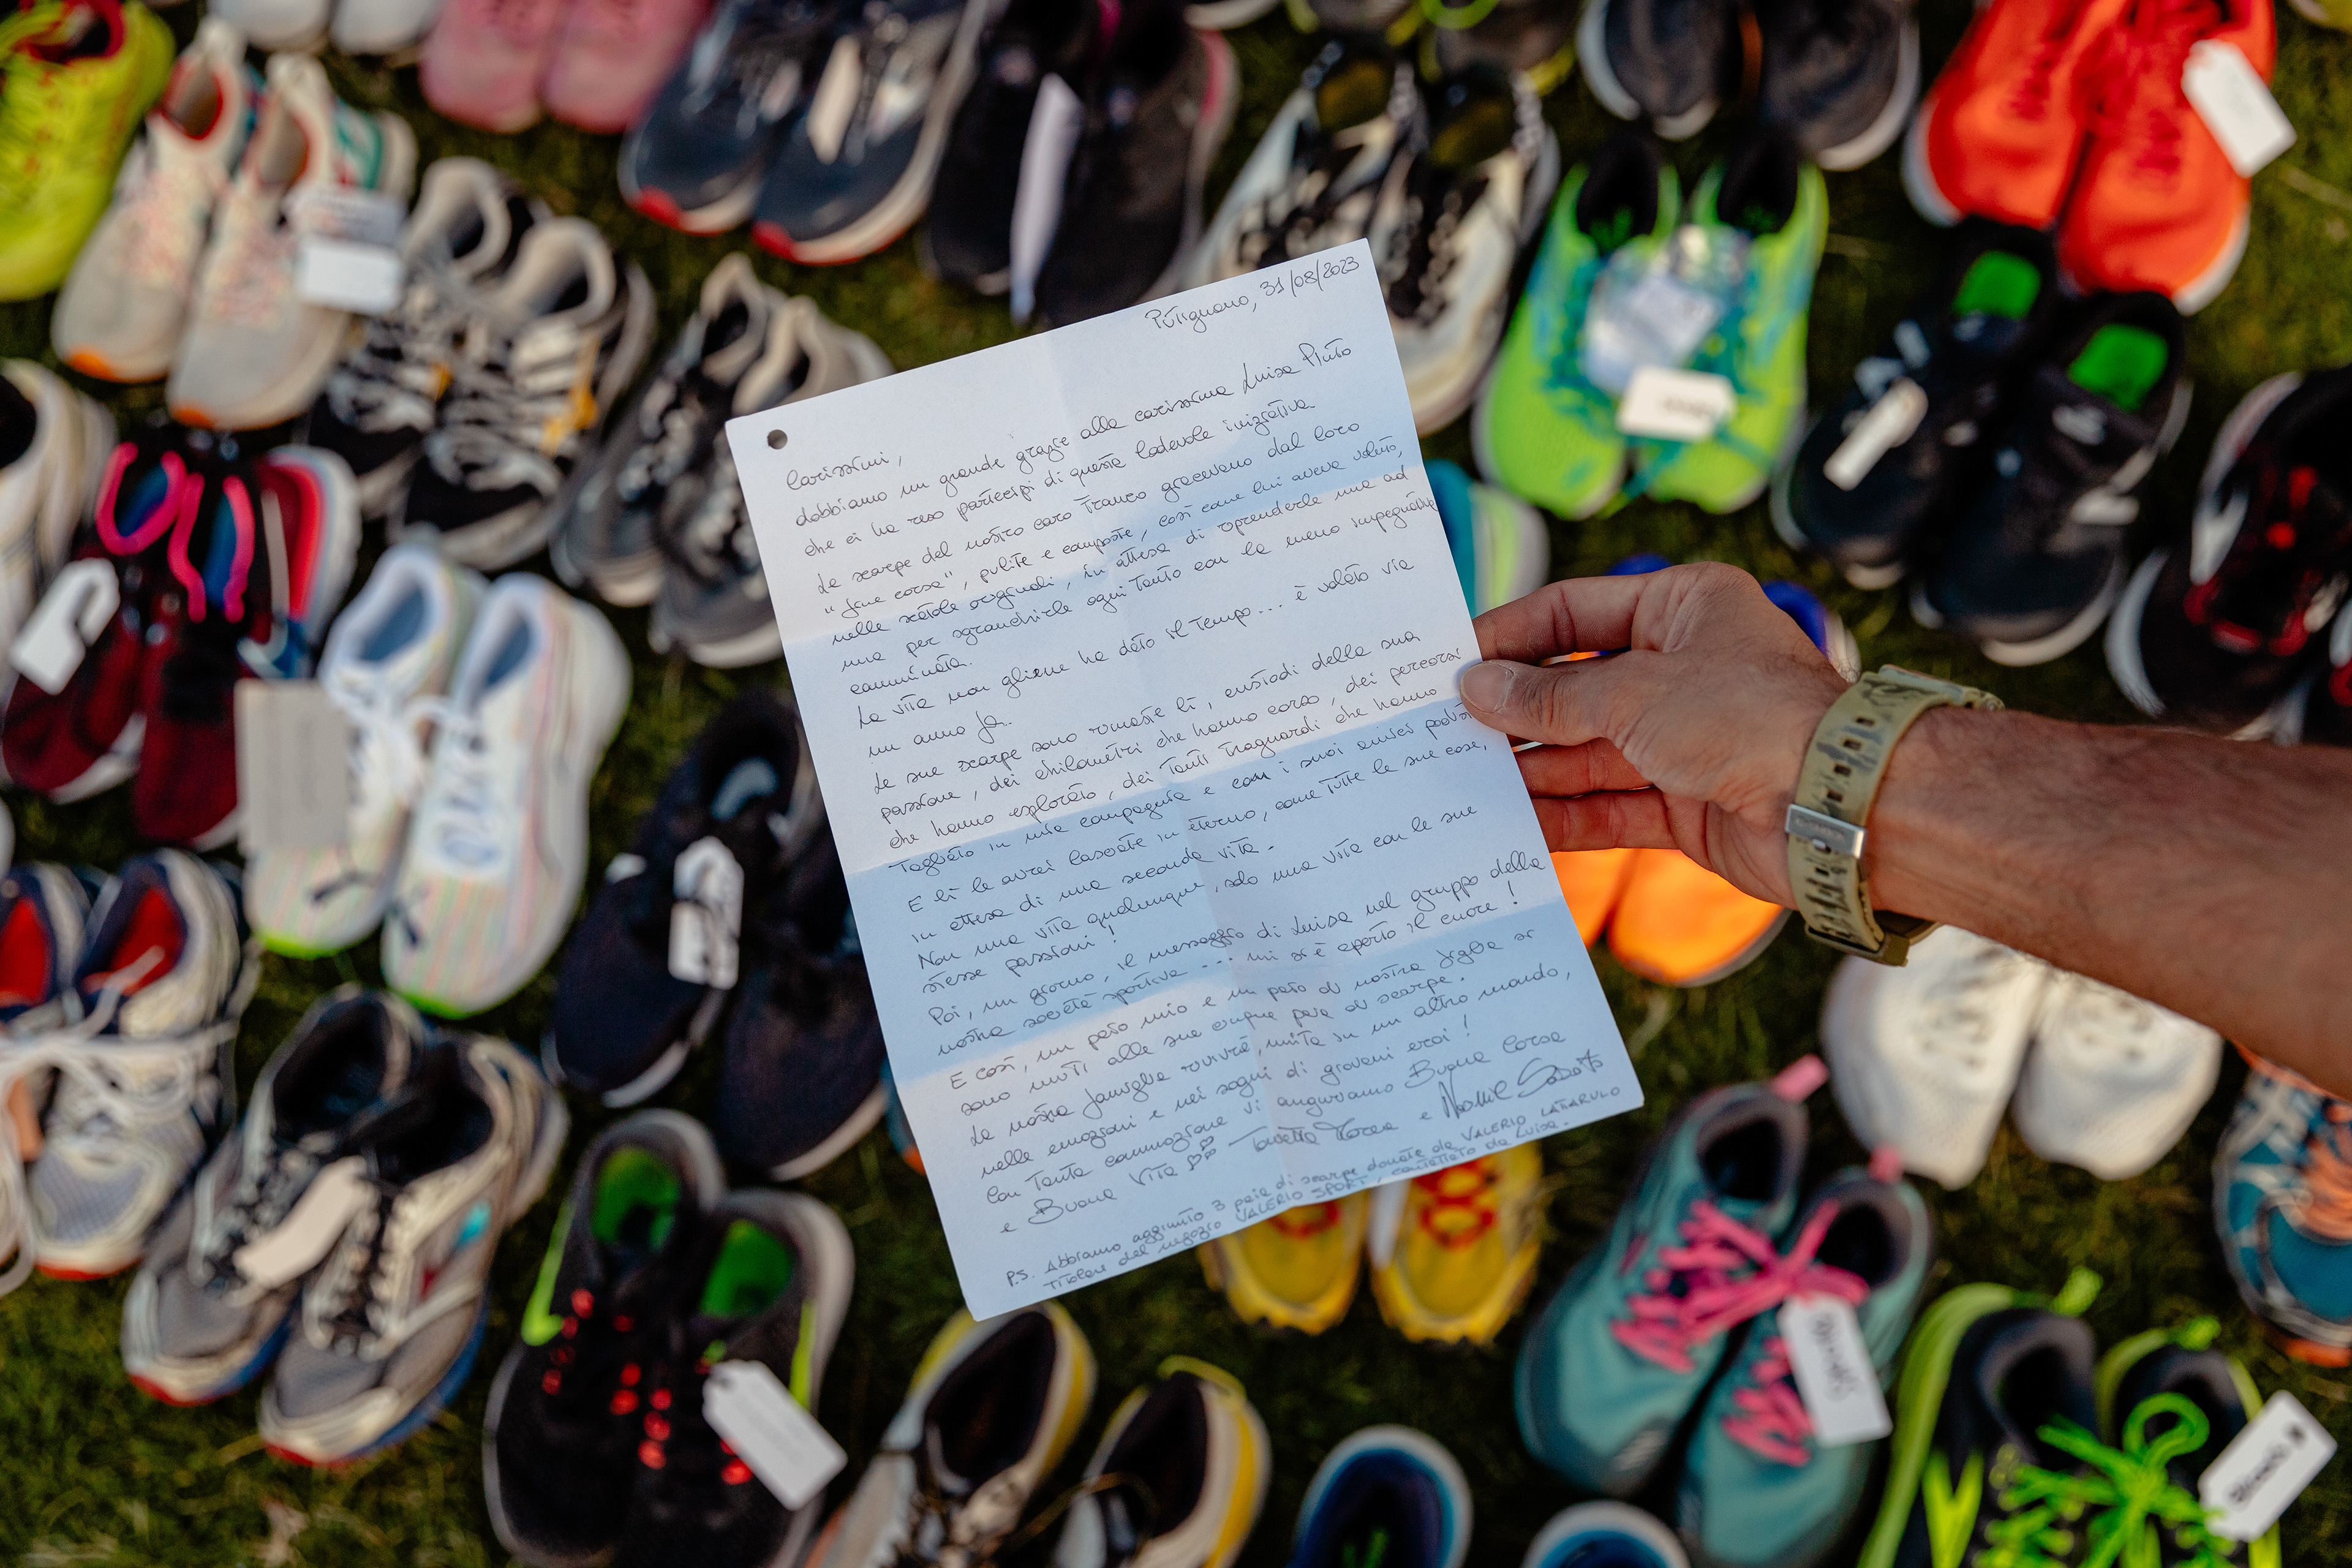 Putignano, 31/08/2023
Carissimi,
dobbiamo un grande grazie alla carissima Luisa Pluto
che ci ha reso partecipi di questa lodevole iniziativa
Le scarpe del nostro caro Franco giacevano dal loro
"fine corsa", pulite e composte, così come lui aveva voluto,
nelle scatole originali, in attesa di riprenderle una ad
una per sgranchirle ogni tanto con la meno impegnativa
camminata.
La vita non gliene ha dato il tempo... è volato via
un anno fa.
Le sue scarpe sono rimaste lì, custodi della sua
passione, dei chilometri che hanno corso, dei percorsi
che hanno esplorato, dei tanti traguardi che hanno
tagliato in mia compagnia e con i suoi amici
E lì le avrei lasciate in eterno, come tutte le sue cose,
in attesa di una seconda vita.
Non una vita qualunque, solo una vita con le sue
stesse passioni!
Poi, un giorno, il messaggio di Luisa nel gruppo della
nostra società sportiva... mi si è aperto il cuore!
E così, un paio mio e un paio di nostra figlia si
sono uniti alle sue cinque paia di scarpe.
La nostra famiglia rivivrà, unita in un altro mondo,
nelle emozioni e nei sogni di giovani eroi!
Con tanta commozione vi auguriamo Buona Corsa
e Buona Vita
P.S. Abbiamo aggiunto 3 paia di scarpe donate da VALERIO LATARULO
titolare del negozio VALERIO SPORT, contattato da Luisa.